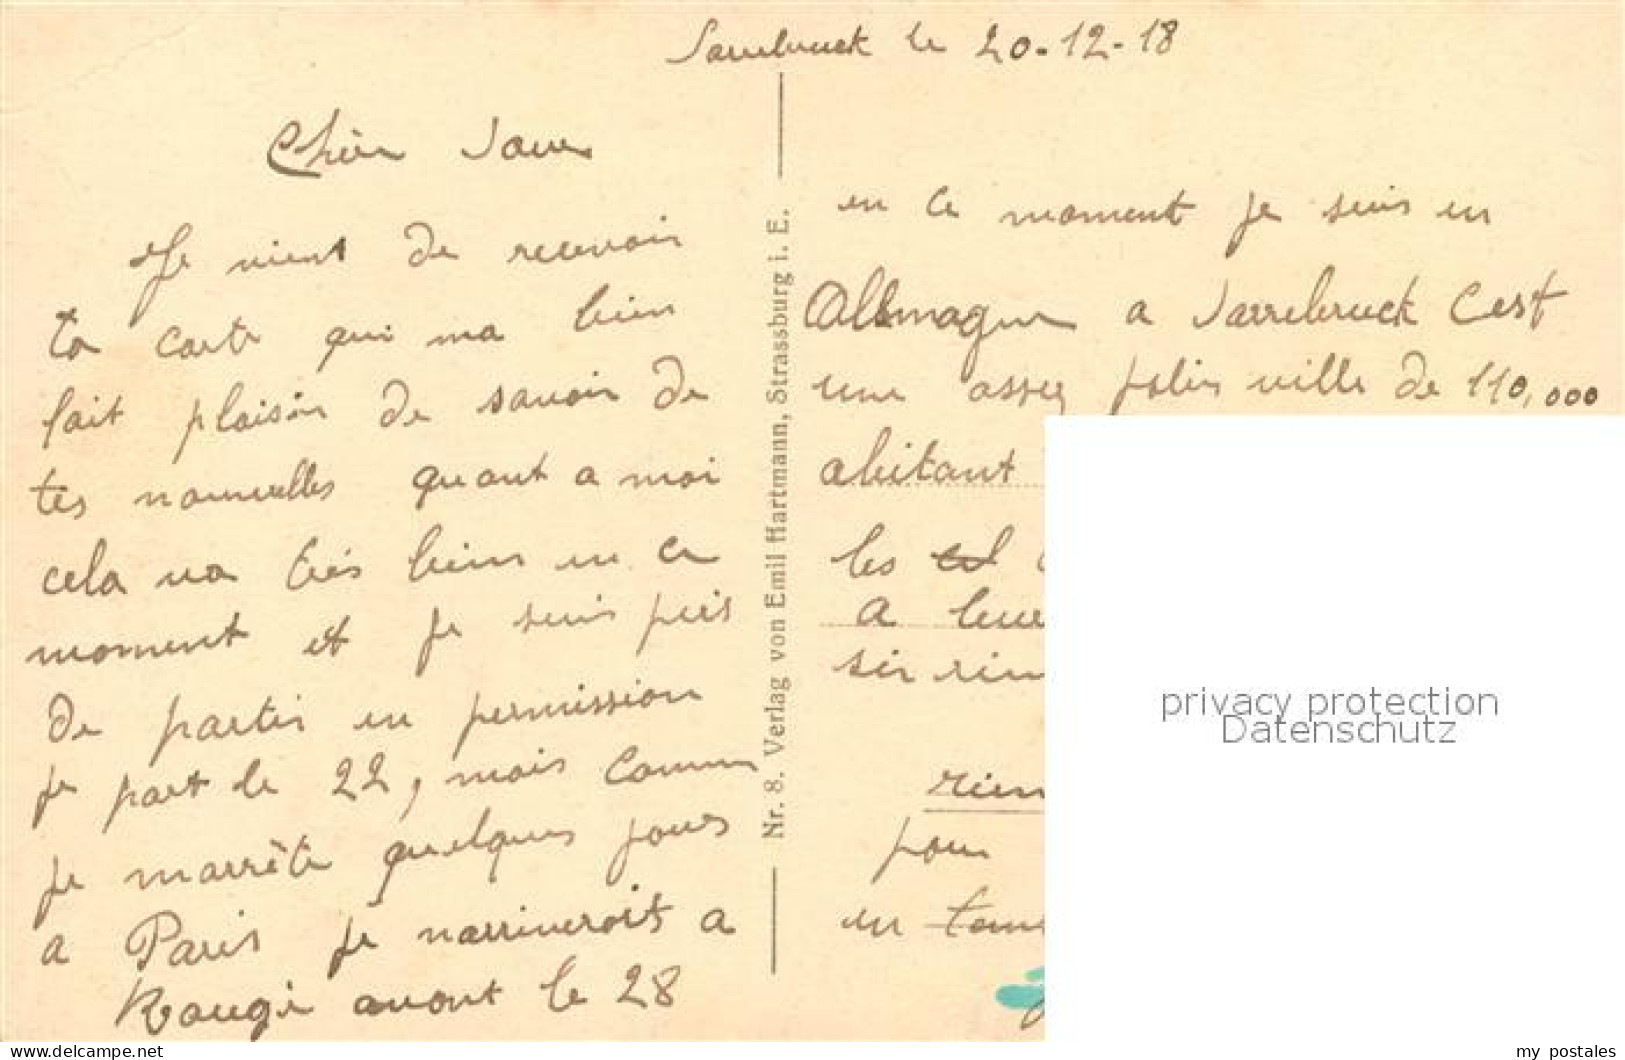 Sarrebruck le 20-12-18
Chèr
Je vient de recevoir
ta carte qui ma bien
fait plaisir de savoir de
tes nouvelles quant a moi
cela va très bien en ce
moment et je suis près
de partir en permission
je part le 22, mais comme
je marrête quelques jours
a Paris je narriveroit a
Rougé avant le 28
Nr. 8. Verlag von Emil Hartmann, Strassburg i. E.
en ce moment je suis en
Allemagne a Sarrebruck Cest
une assez jolie ville de 110,000
abitant
les
a leur
sir rien
rien
pour
en
privacy protection
Datenschutz
my postales
https://www.delcampe.net